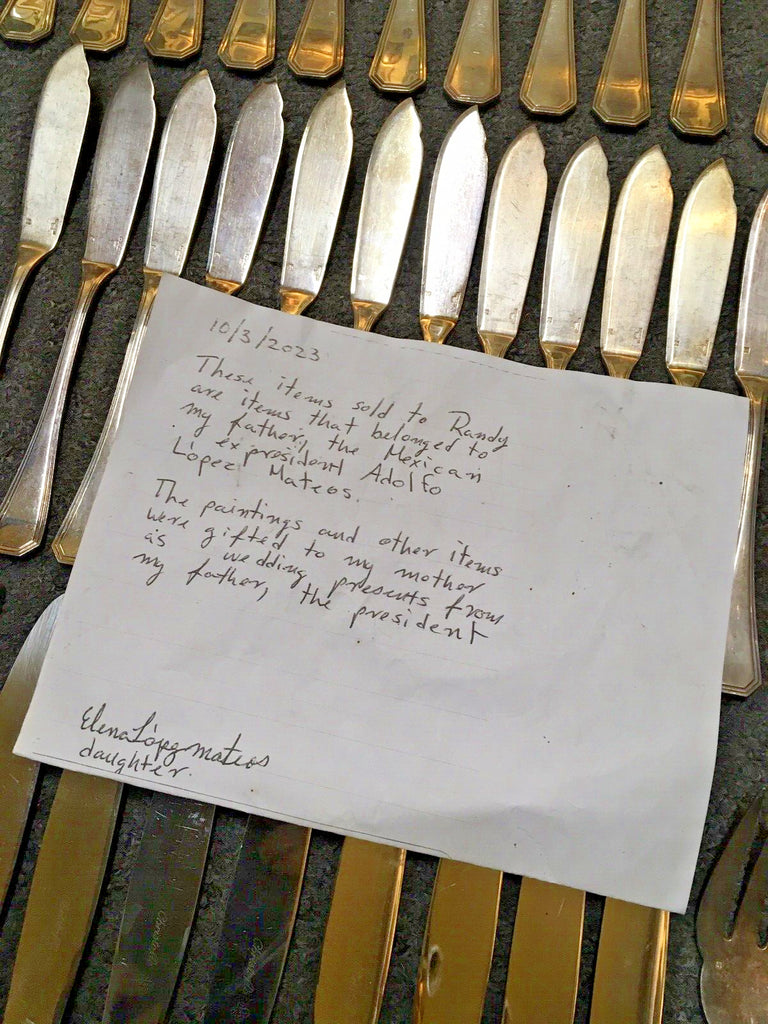 10/3/2023
These items sold to Randy
are items that belonged to
my father, the Mexican
expresident Adolfo
López Mateos.
The paintings and other items
were gifted to my mother
as wedding presents from
my father, the president
Elena López Mateos
daughter.